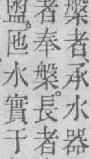 槃者、承水器
者奉槃。長者
盥。匜水實于